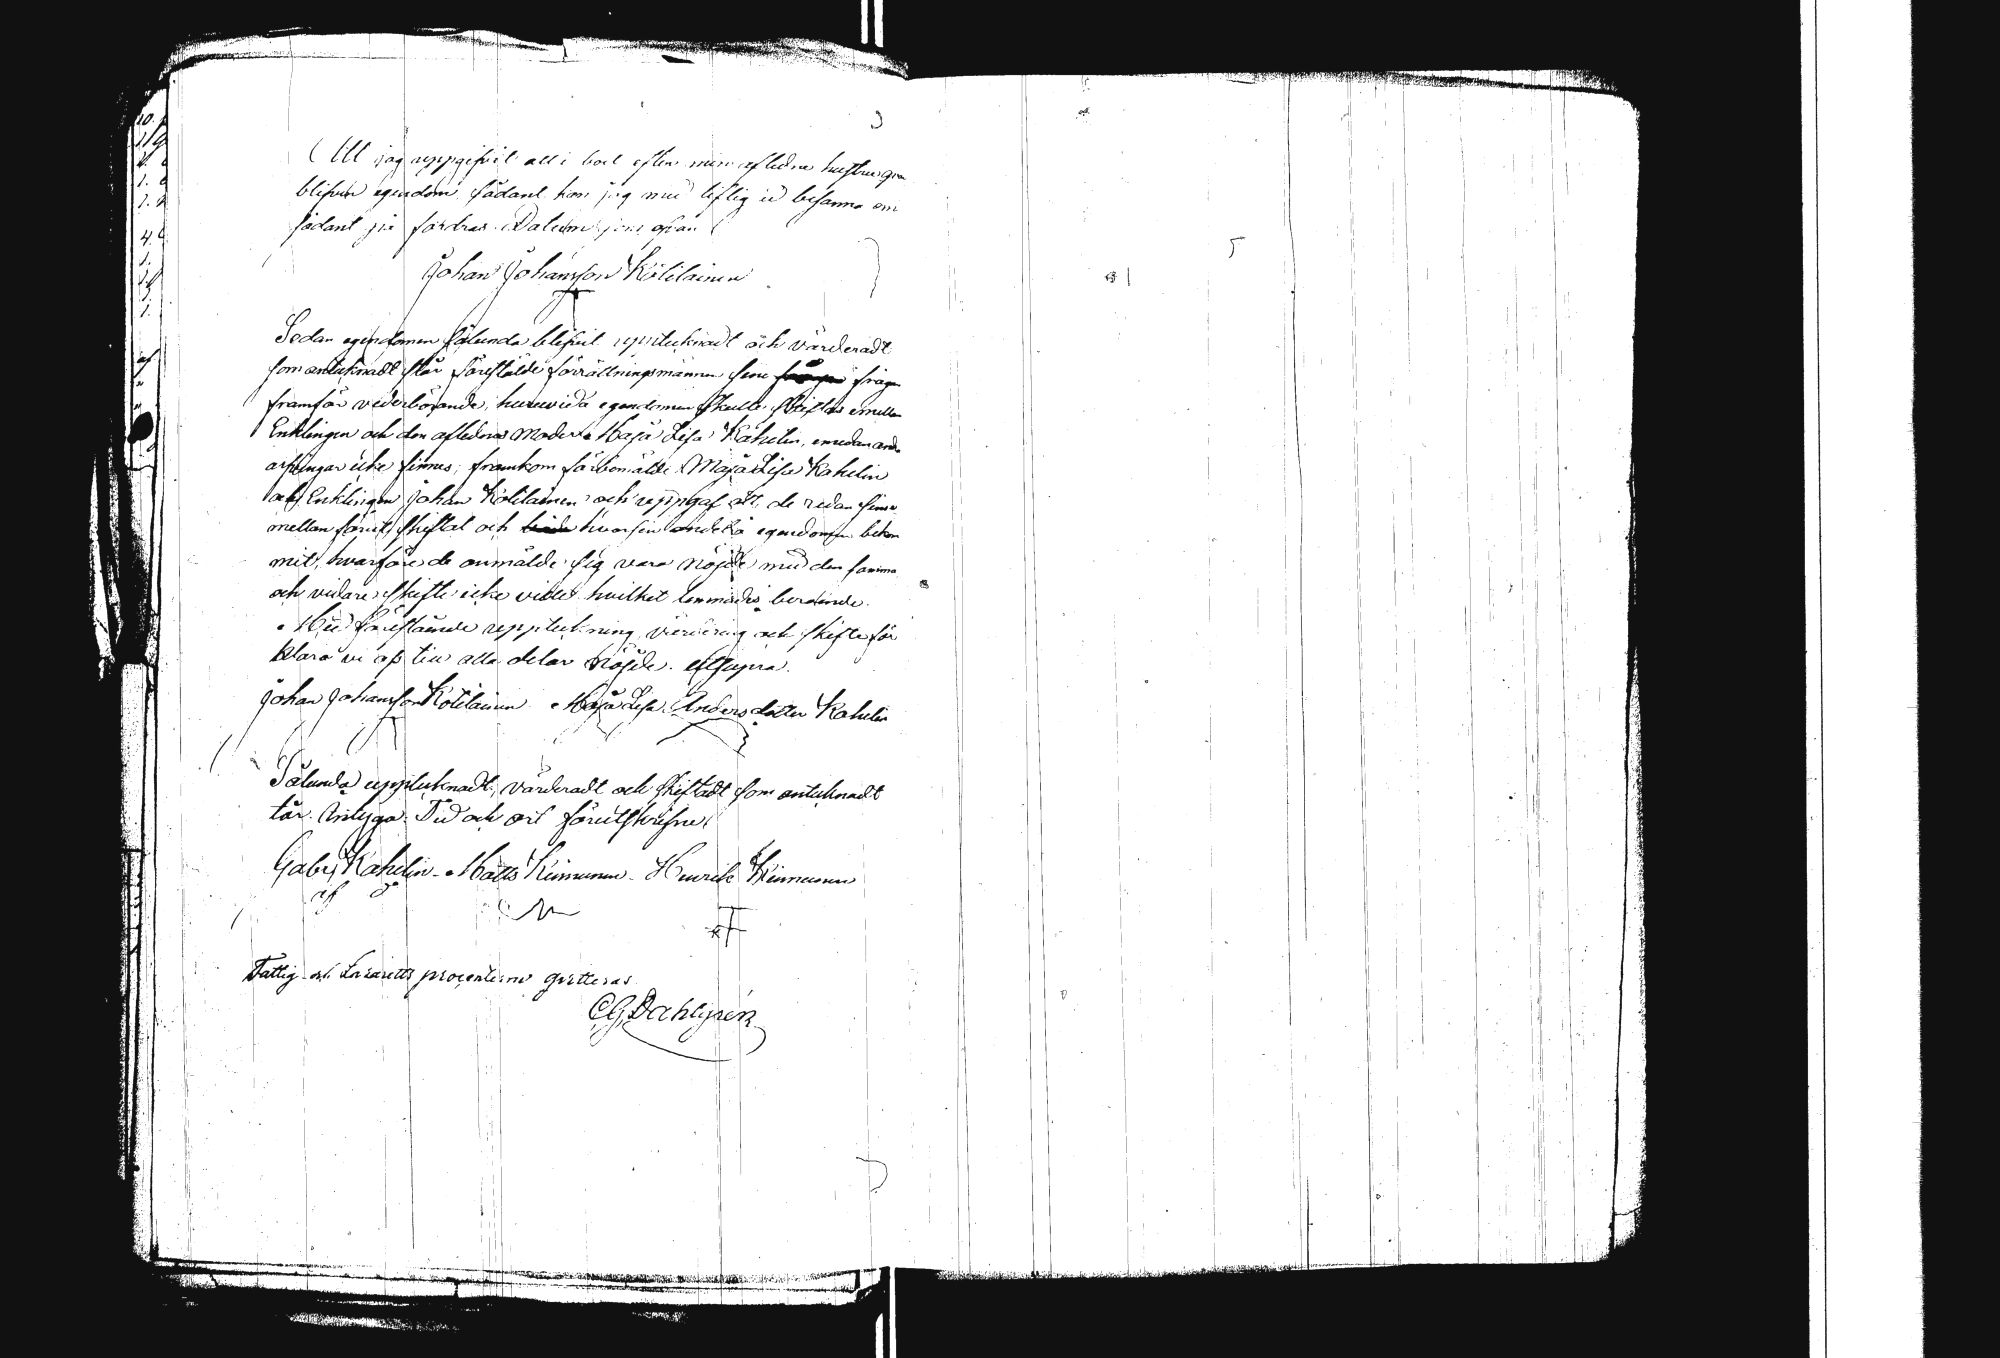 Att jag uppgifvit allt i boet efter min aflidna hustru qvar
blifven egendom, sådant kan jag med liflig ed besanna om
sådant på fordras. Datum som ofvan
Johan Johansson Kötilainen
Sedan egendomen sålunda blifvit uppteknadt och värderadt
som anteknadt står förestälde förrättningsmännen sine frågor
framför vederbörande, huruvida egendomen skulle skiftas emellan
Enklingen och den aflednas Moder Maja Lisa Kahelin, emedan andra
arfvingar icke finnes; framkom förbemälde Maja Lisa Kahelin
och Enklingen Johan Kötilainen och uppgaf att de redan sine
mellan förut skiftat och hvar sin andel i egendomen bekom
mit, hvarföre de anmälde sig vara nöjde med den samma
och vidare skifte icke vidtes hvilket lemnades beroende.
Med förestående uppteckning värdering och skifte för
klara vi oss till alla delar nöjde. Utsupra.
Johan Johansson Kötilainen Maja Lisa Andersdotter Kahelin
Sålunda uppteknadt, värderadt och skiftadt som anteknadt
står. Intyga. Tid och ort förutskrefne
Gabr Kahelin. Matts Keinunen. Henrik Keinunen
Fattig och Lazaretts procenterne qvitteras
CG Dahlgrén